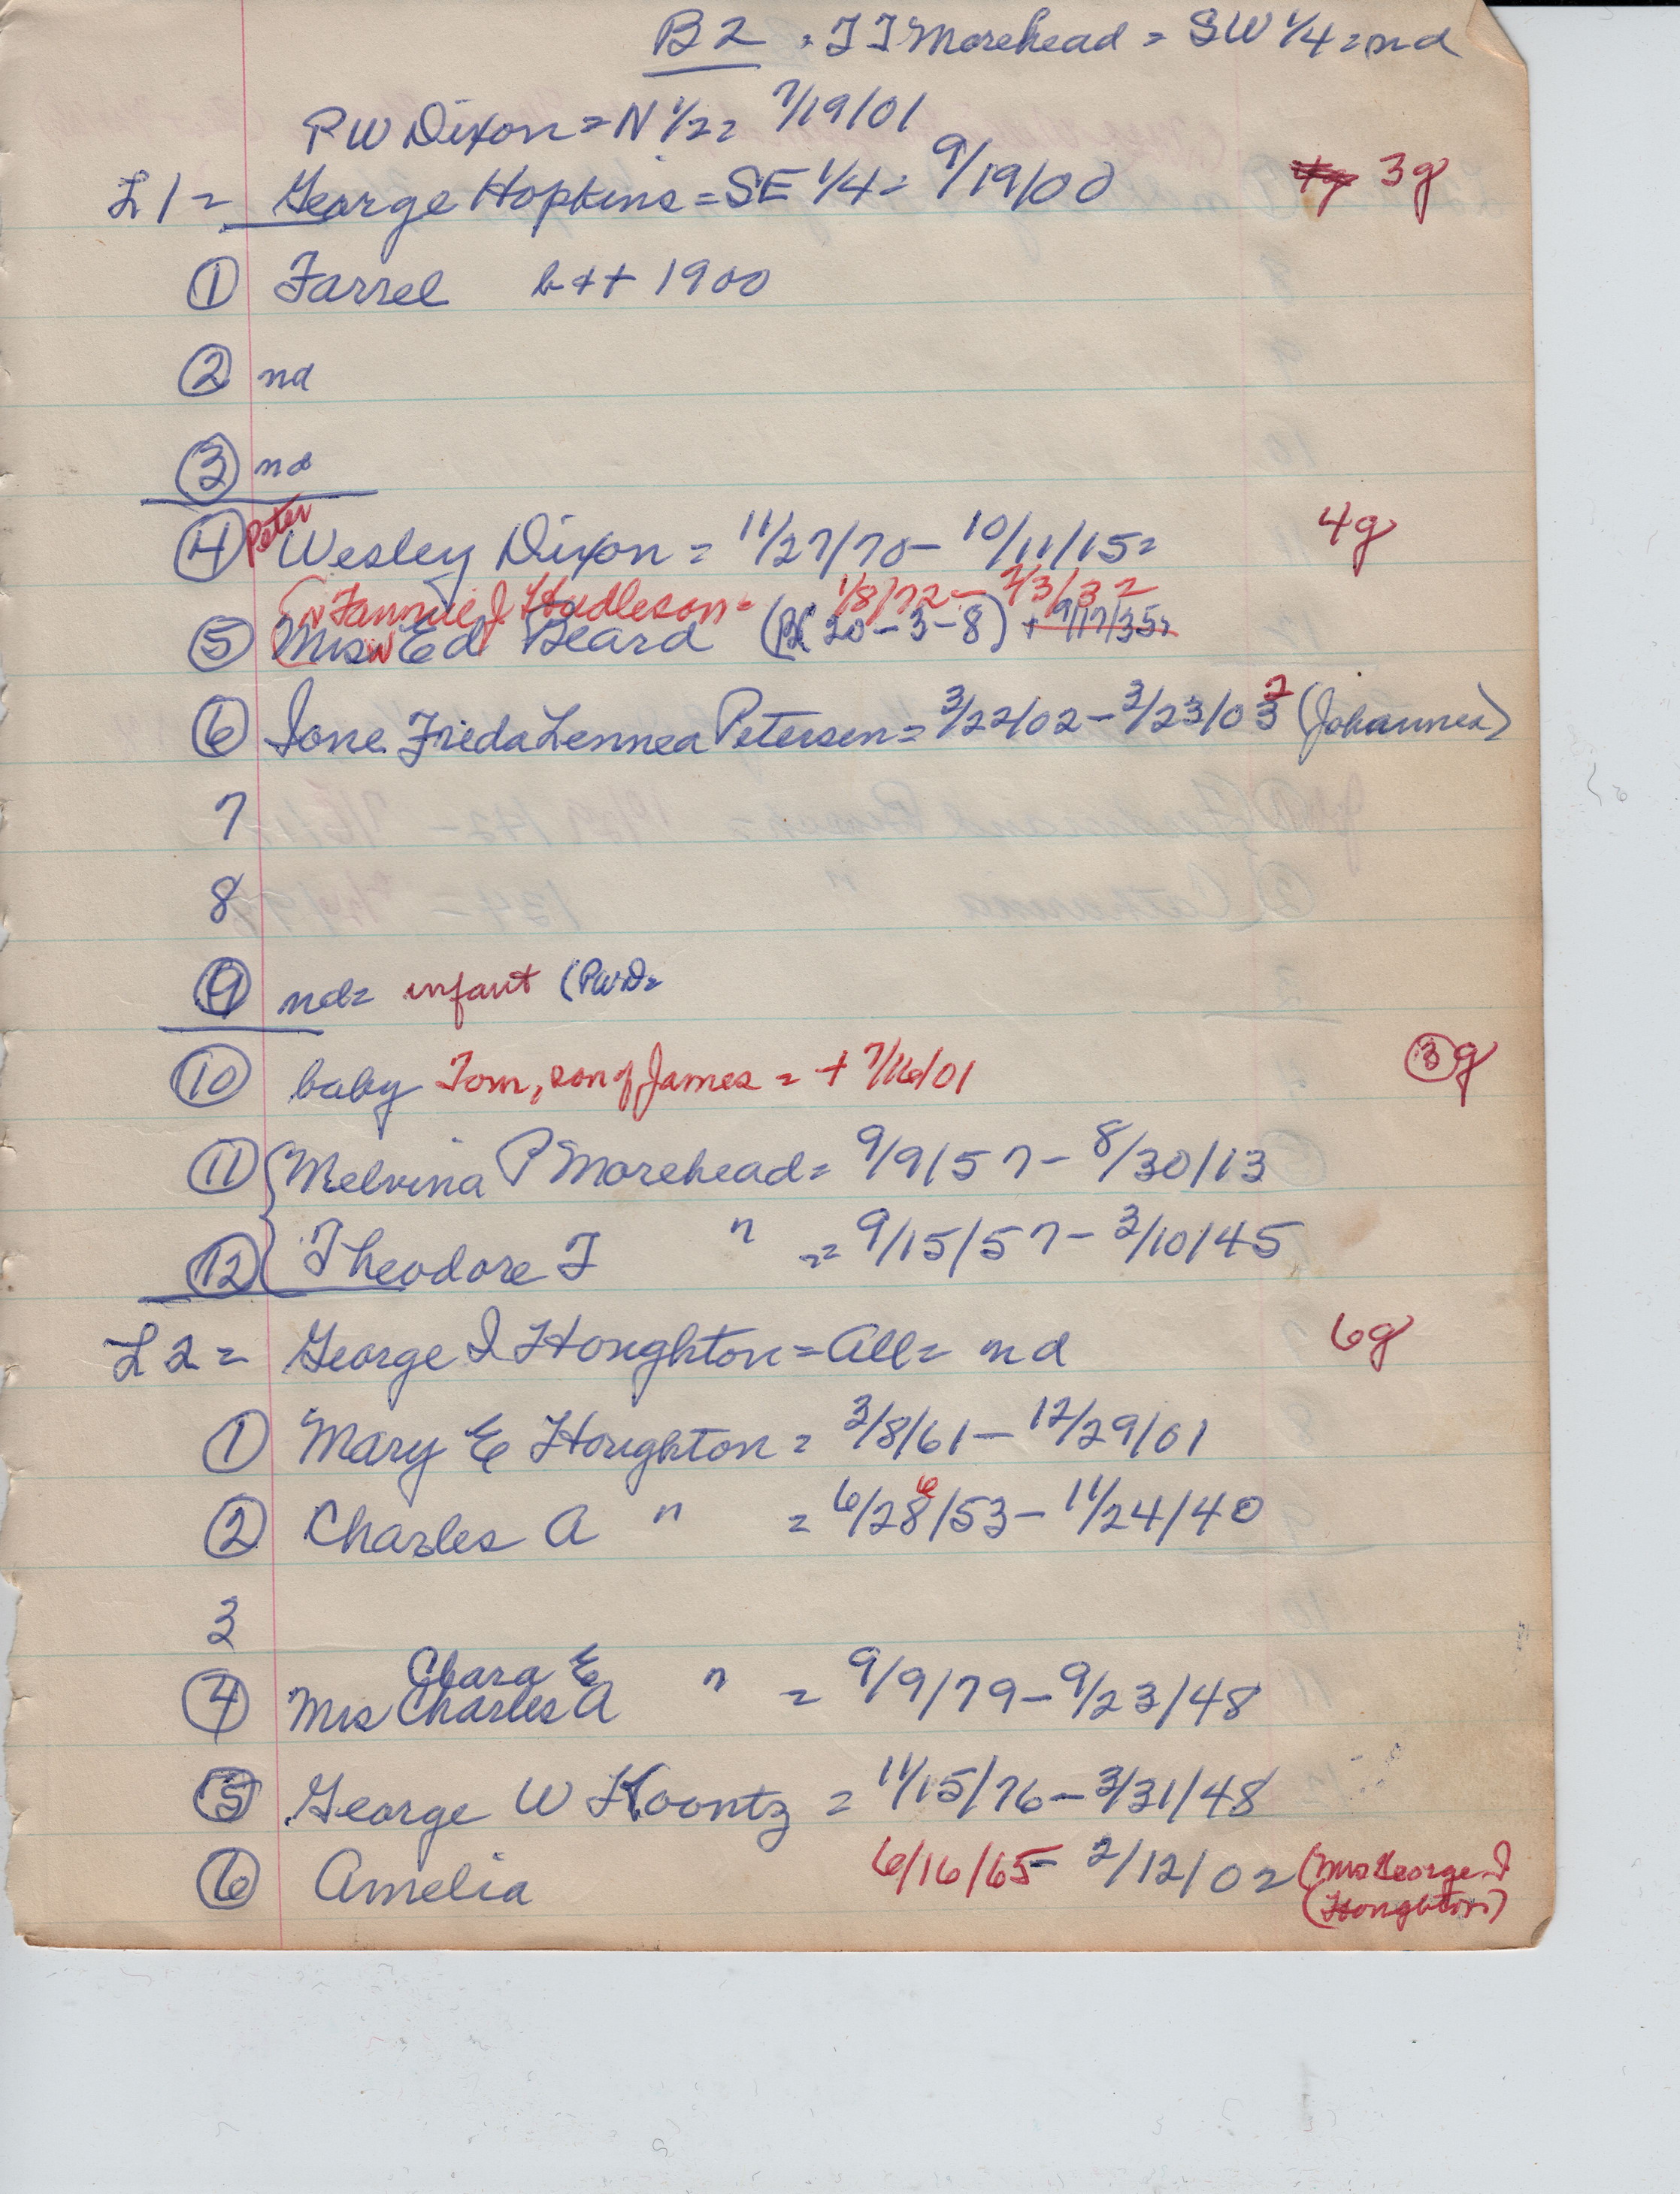 B2 = TT Morehead = SW 1/4 = nd
PW Dixon = N 1/2 = 7/19/01
L1 = George Hopkins = SE 1/4 = 9/19/00 3g
1 Farrel b++ 1900
2 nd
3 nd
4 Peter Wesley Dixon = 11/27/70 - 10/11/15 = 4g
Fannie J Hudleson = 1/8/72 - 7/3/32
5 Mrs Ed Beard (B 20-3-8) + 9/17/35 =
6 Ione Freda Lennea Petersen = 3/22/02 - 3/23/03 2 (Johannes)
7
8
9 nd = infant (PWD =
10 baby Tom, son of James = + 7/16/01 3g
11 Melvina P Morehead = 9/9/57 - 8/30/13
12 Theodore T " = 9/15/57 - 3/10/45
L2 = George I Houghton = All = nd 6g
1 Mary E Houghton = 3/8/61 - 12/29/01
2 Charles A " = 6/28/53 - 11/24/40 6
3
Clara E
4 Mrs Charles A " = 9/9/79 - 9/23/48
5 George W Koontz = 11/15/76 - 3/31/48
6 Amelia 6/16/65 - 2/12/02 (Mrs George I
(Houghton)